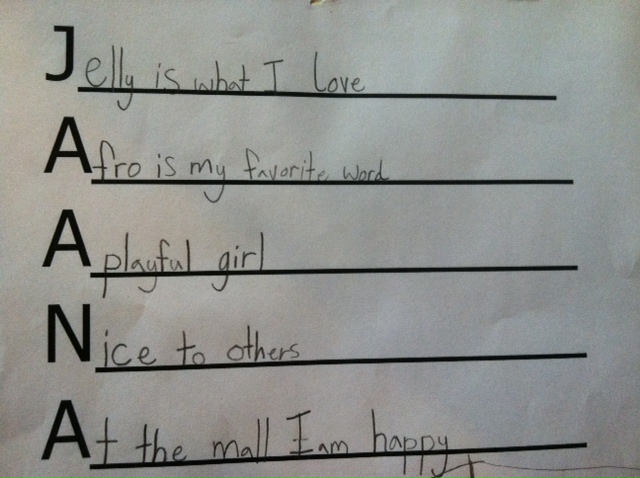 Jelly is what I love
Afro is my favorite word
A playful girl
Nice to others
At the mall I am happy